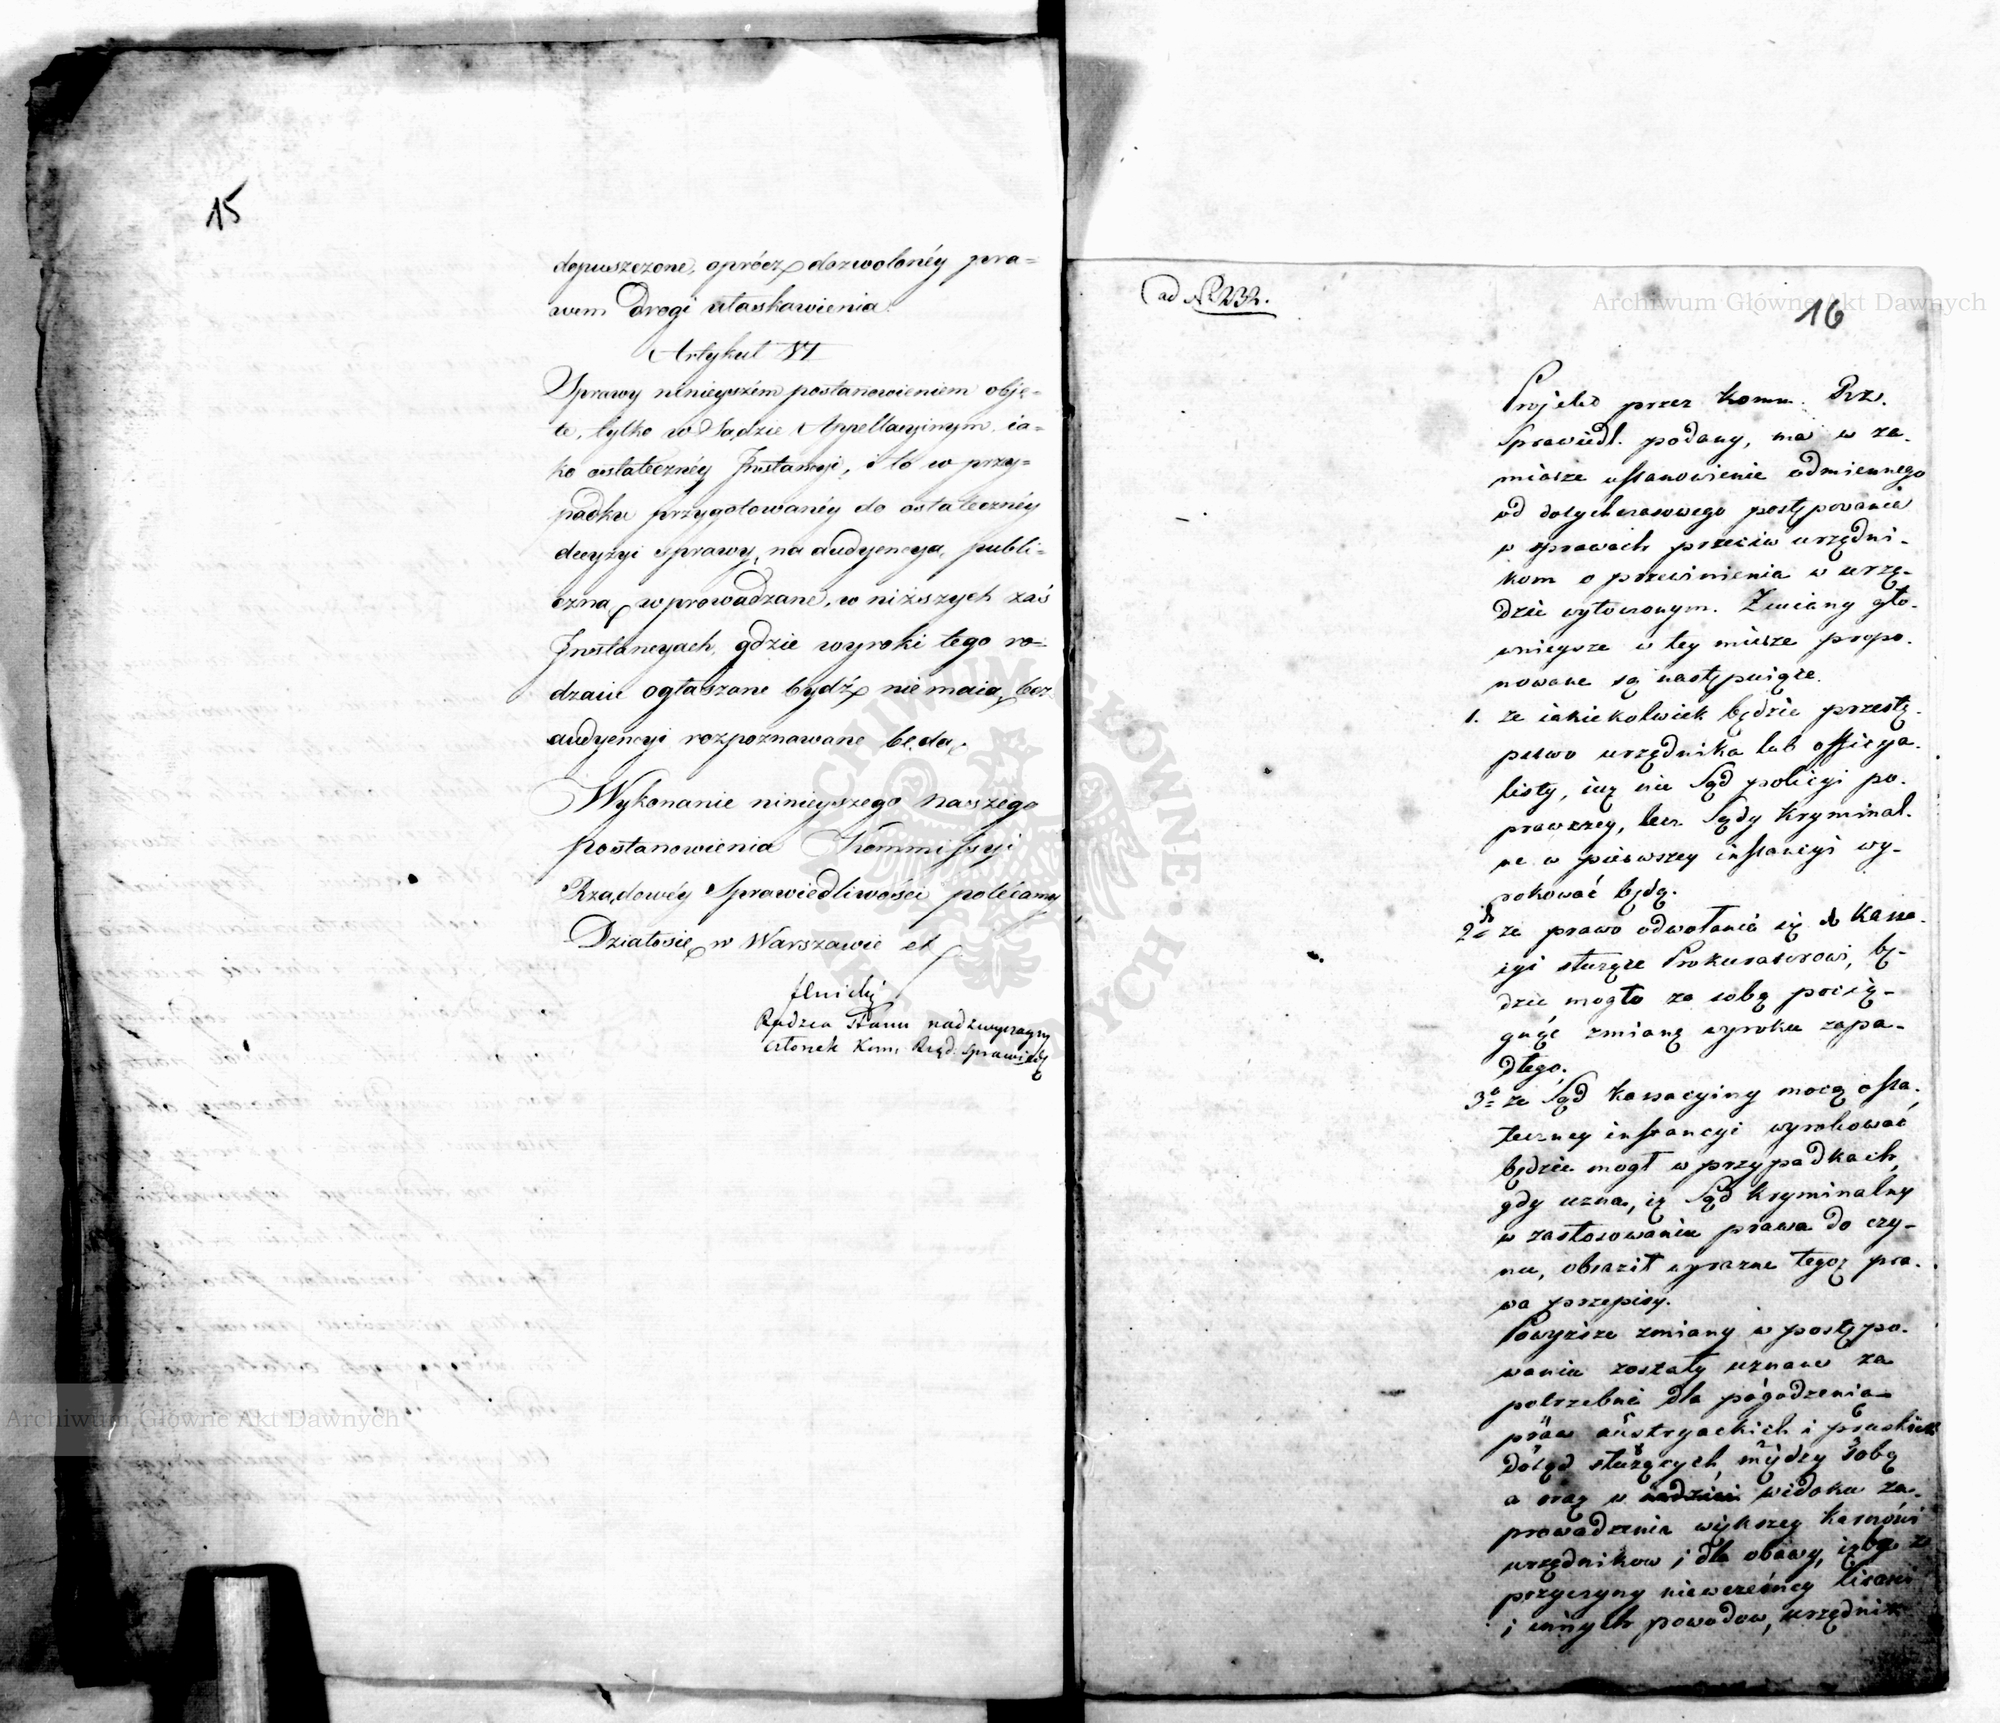 15
dopuszczone, oprócz dozwolonéy pra=
wem drogi ułaskawienia.
Artykuł VI
Sprawy ninieyszém postanowieniem obję=
te, tylko w Sądzie Appellacyinym, ia=
ko ostatecznéy Instancyi, i to w przy=
padku przygotowanéy do ostatecznéy
decyzyi sprawy, na audyencyą publi=
czną wprowadzane, w niższych zaś
Instancyach, gdzie wyroki tego ro=
dzaiu ogłaszane bydź nie maią, bez
audyencyi rozpoznawane będą.
Wykonanie ninieyszego naszego
postanowienia Kommissyi
Rządowéy Sprawiedliwości polécamy
Działo się w Warszawie et
Radzca Stanu nadzwyczayny
Członek Kom. Rząd. Sprawiedl.
ad № 232.
16
Projekt przez Komm. Rz.
Sprawiedl. podany, ma w za-
miarze ustanowienie odmiennego
od dotychczasowego postępowania
w sprawach przeciw urzędni-
kom o przewinienia w urzę-
dzie wytoczonym. Zmiany głó-
wnieysze w tey mierze propo-
nowane są następuiące.
1. że iakiekolwiek będzie przestę-
pstwo urzędnika lub officya-
listy, iuż nie Sąd policyi po-
prawczey, lecz Sądy Kryminal-
ne w pierwszey instancyi wy-
rokować będą.
2° że prawo odwołania się do Kassa-
cyi służące Prokuratorowi, bę-
dzie mogło za sobą pocią-
gnąć zmianę wyroku zapa-
dłego.
3° że Sąd Kassacyiny mocą osta-
teczney instancyi wyrokować
będzie mógł w przypadkach,
gdy uzna, iż Sąd Kryminalny
w zastosowaniu prawa do czy-
nu, obraził wyraźne tegoż pra-
wa przepisy.
Powyższe zmiany w postępo-
waniu zostały uznane za
potrzebne dla pogodzenia
praw austryackich i pruskich
dotąd służących między sobą
a oraz w widoku za-
prowadzenia większey karności
urzędników i dla obawy, iżby z
przyczyny niewczesney litości
i innych powodów, urzędnik
Archiwum Główne Akt Dawnych
Archiwum Główne Akt Dawnych
ARCHIWUM GŁÓWNE AKT DAWNYCH